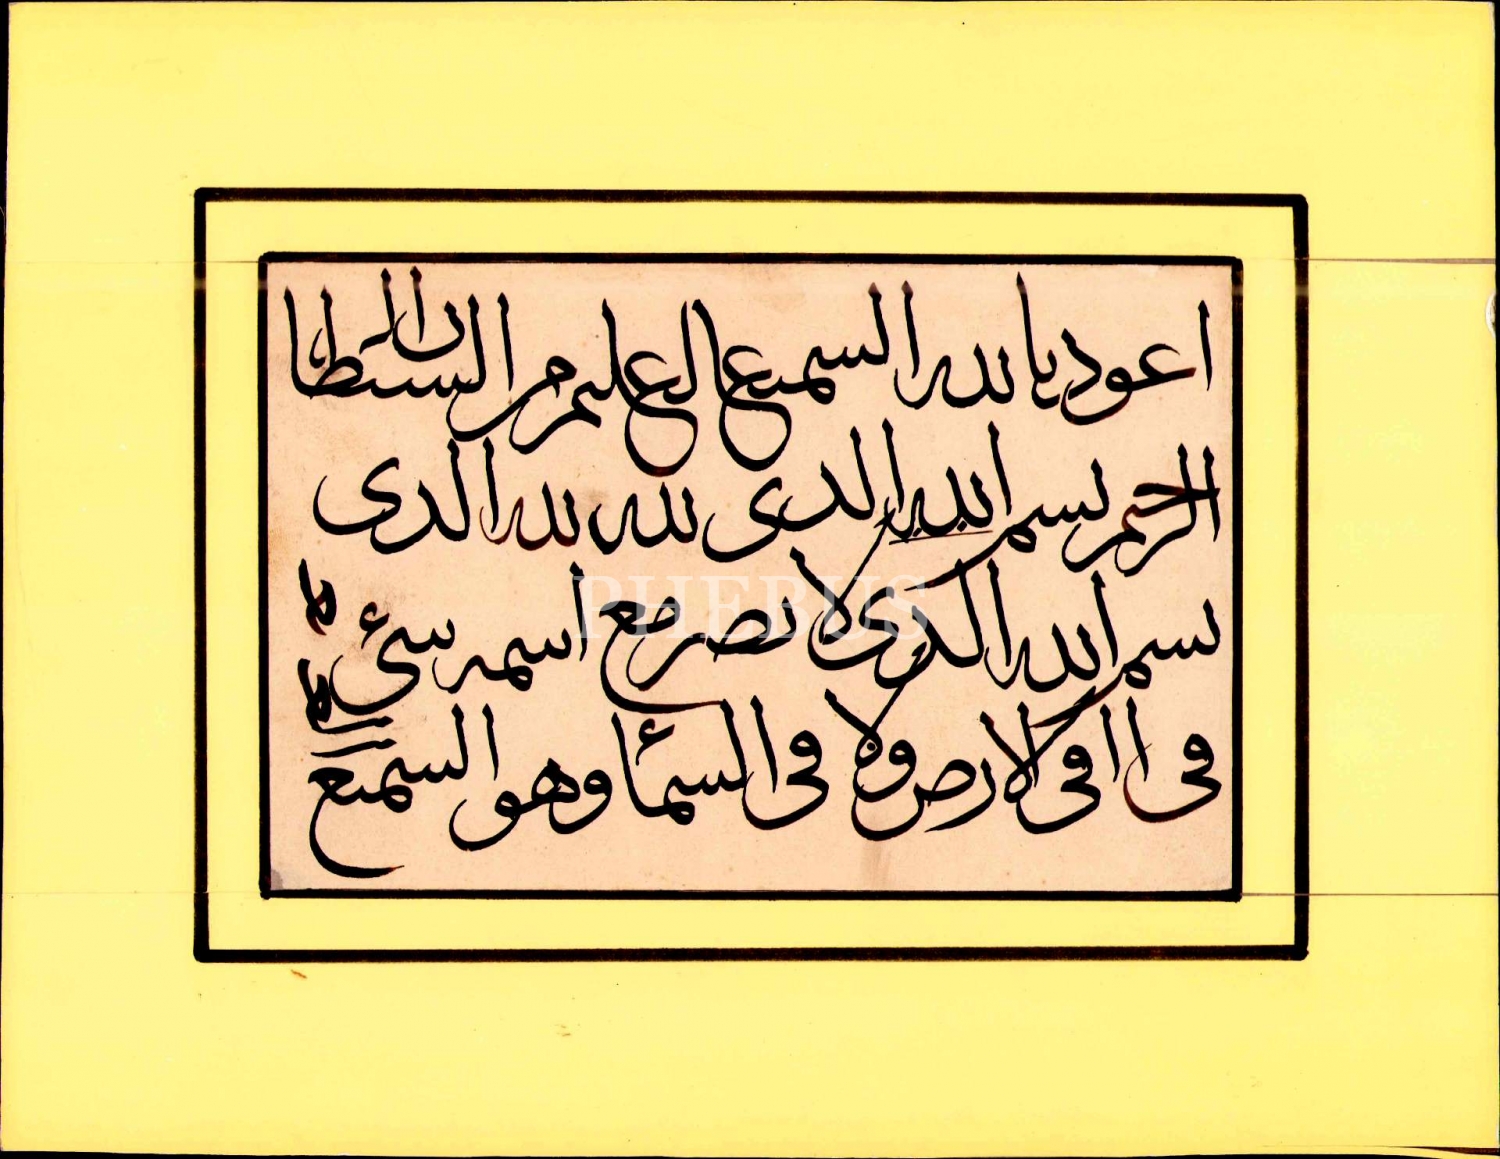 اعوذ بالله السميع العليم من الشيطان ال
الرحيم بسم الله الذى لله لله الذى
بسم الله الذى لا يضر مع اسمه شئ
فى ا ا فى الارض ولا فى السمأ وهو السميع
PHEBUS